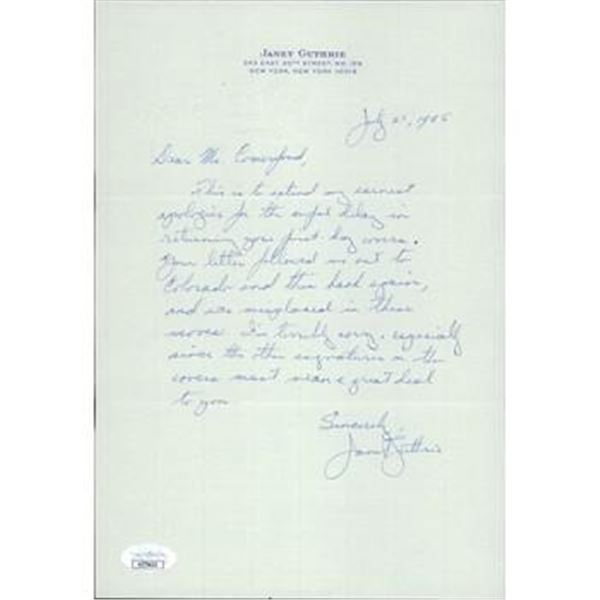 JANET GUTHRIE
NEW YORK, NEW YORK
July 1985
Dear Mr. Comerford,
This is to extend my earnest
apologies for the awful delay in
returning your first day covers.
Your letter followed me out to
Colorado and then back again,
and was misplaced in these
moves. I'm terribly sorry, especially
since the other signatures on the
covers must mean a great deal
to you
Sincerely,
Janet Guthrie